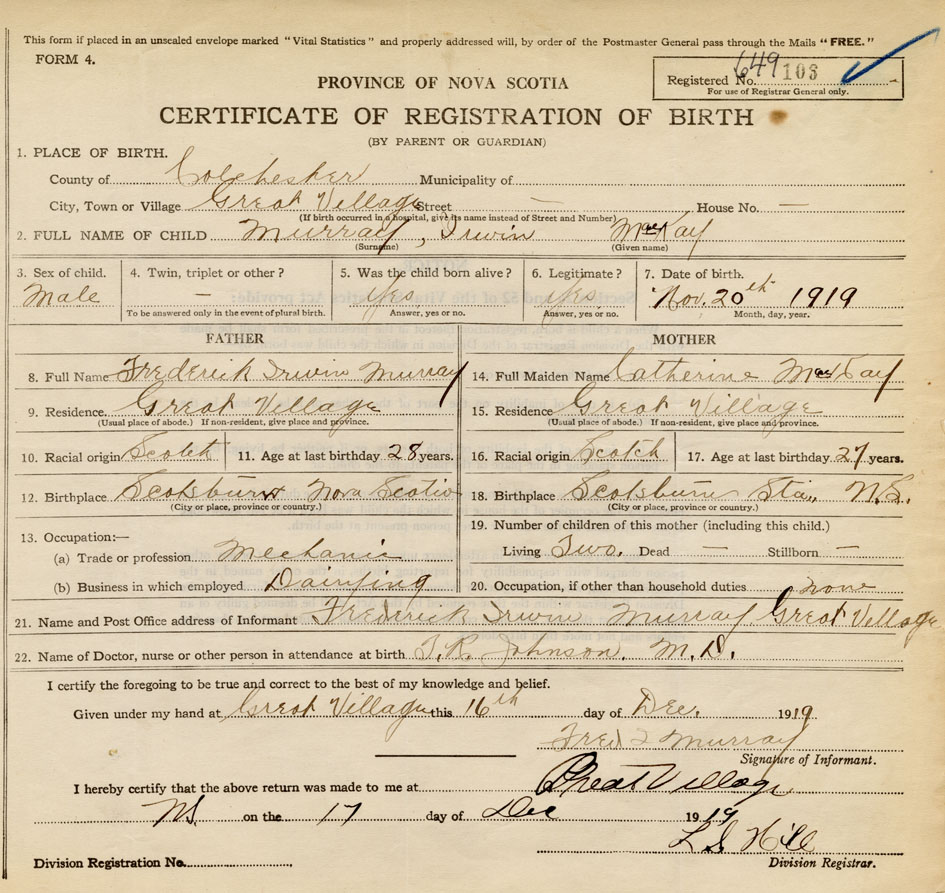 This form if placed in an unsealed envelope marked "Vital Statistics" and properly addressed will, by order of the Postmaster General pass through the Mails "FREE."
FORM 4.
649
Registered No. 103
For use of Registrar General only.
PROVINCE OF NOVA SCOTIA
CERTIFICATE OF REGISTRATION OF BIRTH
(BY PARENT OR GUARDIAN)
1. PLACE OF BIRTH.
County of Colchester Municipality of
City, Town or Village Great Village Street — House No. —
(If birth occurred in a hospital, give its name instead of Street and Number)
2. FULL NAME OF CHILD Murray, Irwin MacKay
(Surname) (Given name)
3. Sex of child. 4. Twin, triplet or other? 5. Was the child born alive? 6. Legitimate? 7. Date of birth.
Male — Yes Yes Nov. 20th 1919
To be answered only in the event of plural birth. Answer, yes or no. Answer, yes or no. Month, day, year.
FATHER MOTHER
8. Full Name Frederick Irwin Murray 14. Full Maiden Name Catherine MacKay
9. Residence. Great Village 15. Residence Great Village
(Usual place of abode.) If non-resident, give place and province. (Usual place of abode.) If non-resident, give place and province.
10. Racial origin Scotch 11. Age at last birthday 28 years. 16. Racial origin Scotch 17. Age at last birthday 27 years.
12. Birthplace Scotsburn Nova Scotia 18. Birthplace Scotsburn Sta., N.S.
(City or place, province or country.) (City or place, province or country.)
13. Occupation:— 19. Number of children of this mother (including this child.)
(a) Trade or profession Mechanic Living Two. Dead — Stillborn —
(b) Business in which employed Dairying 20. Occupation, if other than household duties none
21. Name and Post Office address of Informant Frederick Irwin Murray Great Village
22. Name of Doctor, nurse or other person in attendance at birth T.R. Johnson. M.D.
I certify the foregoing to be true and correct to the best of my knowledge and belief.
Given under my hand at Great Village this 16th day of Dec. 1919
Fred I Murray
Signature of Informant.
I hereby certify that the above return was made to me at Great Village,
NS. on the 17 day of Dec 1919
L S Hill
Division Registration No. Division Registrar.